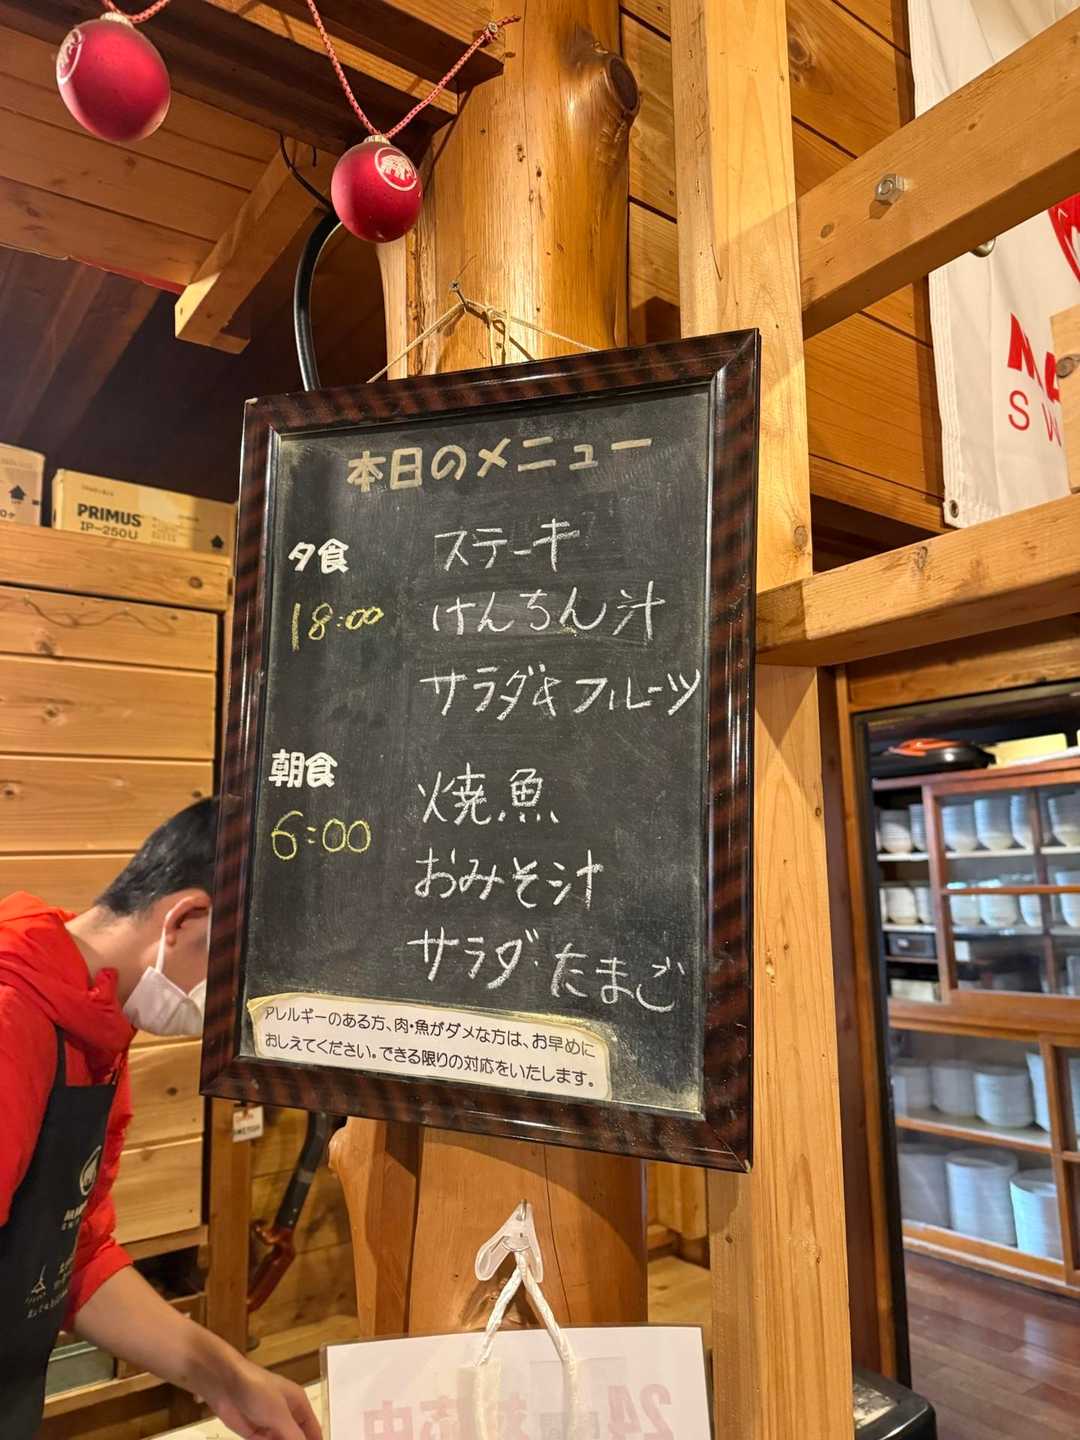 本日のメニュー
夕食
18:00
ステーキ
けんちん汁
サラダ&フルーツ
朝食
6:00
焼魚
おみそ汁
サラダ・たまご
アレルギーのある方、肉・魚がダメな方は、お早めに
おしえてください。できる限りの対応をいたします。
PRIMUS
IP-250U